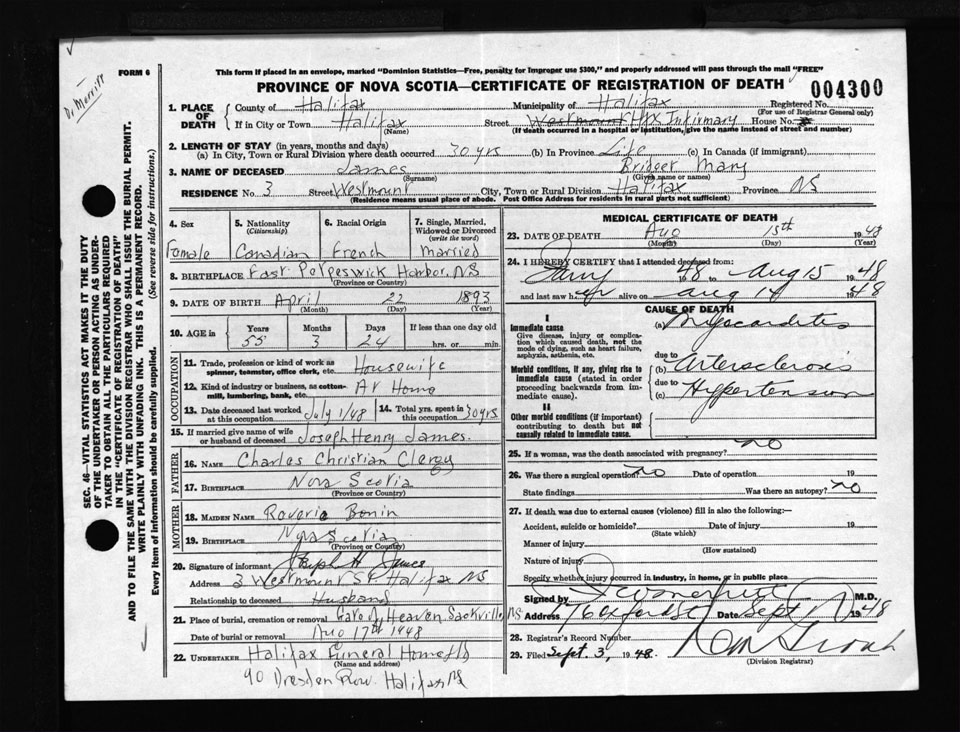 Dr Merritt
FORM 6
This form if placed in an envelope, marked "Dominion Statistics—Free, penalty for improper use $300," and properly addressed will pass through the mail "FREE"
PROVINCE OF NOVA SCOTIA—CERTIFICATE OF REGISTRATION OF DEATH
004300
SEC. 46—VITAL STATISTICS ACT MAKES IT THE DUTY
OF THE UNDERTAKER OR PERSON ACTING AS UNDER-
TAKER TO OBTAIN ALL THE PARTICULARS REQUIRED
IN THE "CERTIFICATE OF REGISTRATION OF DEATH"
AND TO FILE THE SAME WITH THE DIVISION REGISTRAR WHO SHALL ISSUE THE BURIAL PERMIT.
WRITE PLAINLY WITH UNFADING INK. THIS IS A PERMANENT RECORD.
Every item of information should be carefully supplied. (See reverse side for instructions.)
1. PLACE OF DEATH
County of Halifax Municipality of Halifax Registered No.
(For use of Registrar General only)
If in City or Town Halifax Street Westmount Hfx Infirmary House No.
(Name) (If death occurred in a hospital or institution, give the name instead of street and number)
2. LENGTH OF STAY (in years, months and days)
(a) In City, Town or Rural Division where death occurred 30 yrs (b) In Province Life (c) In Canada (if immigrant)
3. NAME OF DECEASED James Bridget Mary
(Surname) (Given name or names)
RESIDENCE No. 3 Street Westmount City, Town or Rural Division Halifax Province NS
(Residence means usual place of abode. Post Office Address for residents in rural parts not sufficient)
4. Sex 5. Nationality (Citizenship) 6. Racial Origin 7. Single, Married, Widowed or Divorced (write the word)
Female Canadian French Married
8. BIRTHPLACE East Petpeswick Harbor, NS
(Province or Country)
9. DATE OF BIRTH April 22 1893
(Month) (Day) (Year)
10. AGE in Years Months Days If less than one day old
55 3 24 hrs. or min.
OCCUPATION
11. Trade, profession or kind of work as spinner, teamster, office clerk, etc. Housewife
12. Kind of industry or business, as cotton-mill, lumbering, bank, etc. At Home
13. Date deceased last worked at this occupation July 1/48 14. Total yrs. spent in this occupation 30 yrs
15. If married give name of wife or husband of deceased Joseph Henry James.
FATHER
16. NAME Charles Christian Clergy
17. BIRTHPLACE Nova Scotia
(Province or Country)
MOTHER
18. MAIDEN NAME Bonin
19. BIRTHPLACE Nova Scotia
(Province or Country)
20. Signature of informant Joseph H James
Address 3 Westmount St Halifax NS
Relationship to deceased Husband
21. Place of burial, cremation or removal Gate of Heaven Sackville NS
Date of burial or removal Aug 17th 1948
22. UNDERTAKER Halifax Funeral Home Ltd
(Name and address)
90 Dresden Row. Halifax NS
MEDICAL CERTIFICATE OF DEATH
23. DATE OF DEATH Aug 15th 1948
(Month) (Day) (Year)
24. I HEREBY CERTIFY that I attended deceased from:
Jany 48 to Aug 15 1948
and last saw her alive on Aug 14 1948
CAUSE OF DEATH
I
Immediate cause (a) Myocarditis
Give disease, injury or complication which caused death, not the mode of dying, such as heart failure, asphyxia, asthenia, etc.
due to
Morbid conditions, if any, giving rise to immediate cause (stated in order proceeding backwards from immediate cause). (b) Arterosclerosis
due to
(c) Hypertension
II
Other morbid conditions (if important) contributing to death but not causally related to immediate cause.
25. If a woman, was the death associated with pregnancy? no
26. Was there a surgical operation? no Date of operation 19
State findings Was there an autopsy? no
27. If death was due to external causes (violence) fill in also the following:—
Accident, suicide or homicide? Date of injury 19
(State which)
Manner of injury
(How sustained)
Nature of injury
Specify whether injury occurred in industry, in home, or in public place
Signed by M.D.
Oxford St Date Sept 1948
28. Registrar's Record Number
29. Filed Sept. 3, 1948.
(Division Registrar)